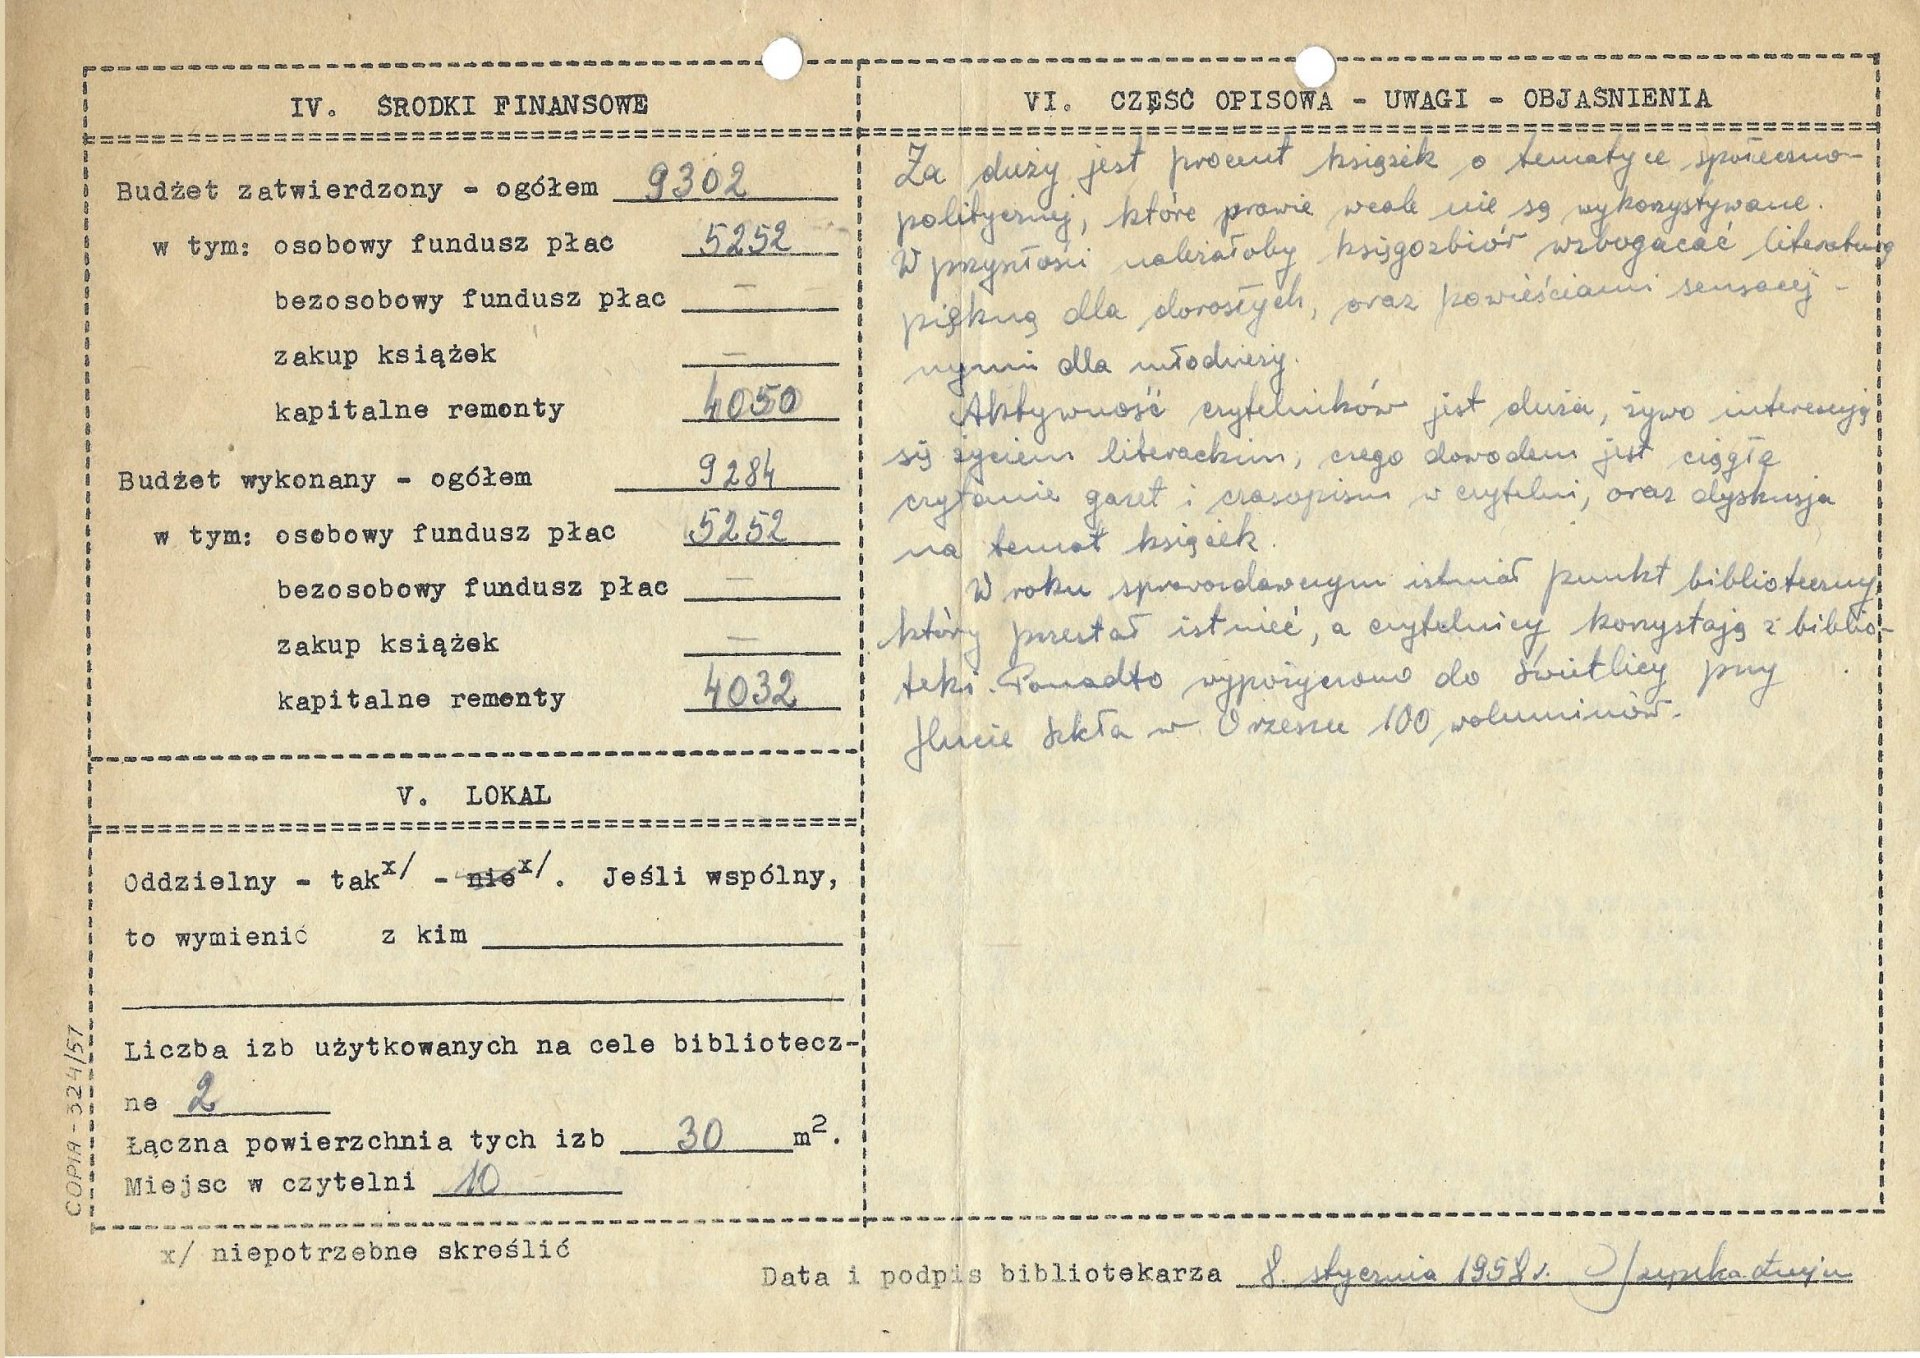 IV. ŚRODKI FINANSOWE
Budżet zatwierdzony - ogółem 9302
w tym: osobowy fundusz płac 5252
bezosobowy fundusz płac —
zakup książek —
kapitalne remonty 4050
Budżet wykonany - ogółem 9284
w tym: osobowy fundusz płac 5252
bezosobowy fundusz płac —
zakup książek —
kapitalne remonty 4032
V. LOKAL
Oddzielny - tak x/ - nie x/. Jeśli wspólny,
to wymienić z kim
Liczba izb użytkowanych na cele bibliotecz-
ne 2
Łączna powierzchnia tych izb 30 m².
Miejsc w czytelni 10
x/ niepotrzebne skreślić
COPIA - 324/57
VI. CZĘŚĆ OPISOWA - UWAGI - OBJAŚNIENIA
Za duży jest procent książek o tematyce społeczno-
politycznej, które prawie wcale nie są wykorzystywane.
W przyszłości należałoby księgozbiór wzbogacać literaturą
piękną dla dorosłych, oraz powieściami sensacyj-
nymi dla młodzieży.
Aktywność czytelników jest duża, żywo interesują
się życiem literackim, czego dowodem jest ciągłe
czytanie gazet i czasopism w czytelni, oraz dyskusja
na temat książek.
W roku sprawozdawczym istniał punkt biblioteczny
który przestał istnieć, a czytelnicy korzystają z biblio-
teki. Ponadto wypożyczono do świetlicy przy
Hucie Szkła w Orzeszu 100 woluminów.
Data i podpis bibliotekarza 8. stycznia 1958 r.